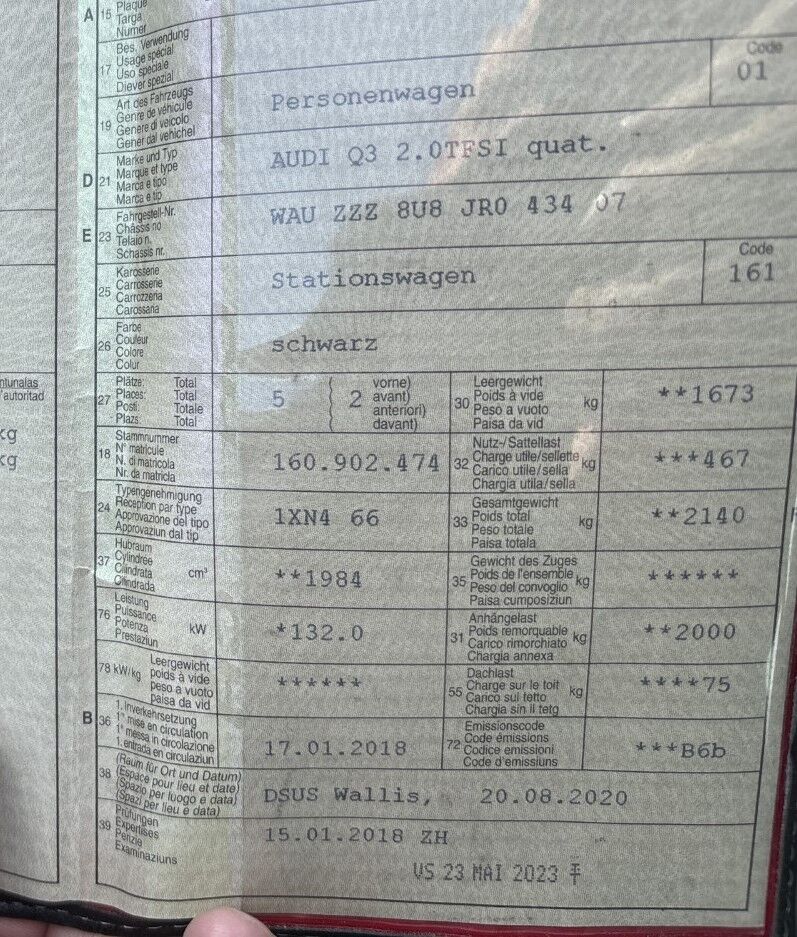 A 15 Plaque
Targa
Numer
17 Bes. Verwendung
Usage spécial
Uso speciale
Diever spezial
Code
01
19 Art des Fahrzeugs
Genre de véhicule
Genere di veicolo
Gener dal vehichel
Personenwagen
D 21 Marke und Typ
Marque et type
Marca e tipo
Marca e tip
AUDI Q3 2.0TFSI quat.
E 23 Fahrgestell-Nr.
Châssis no
Telaio n.
Schassis nr.
WAU ZZZ 8U8 JR0 434 07
25 Karosserie
Carrosserie
Carrozzeria
Carossaria
Stationswagen
Code
161
26 Farbe
Couleur
Colore
Colur
schwarz
27 Plätze: Total
Places: Total
Posti: Totale
Plazs: Total
5 ( 2 vorne)
( avant)
( anteriori)
( davant)
30 Leergewicht
Poids à vide
Peso a vuoto
Paisa da vid
kg **1673
18 Stammnummer
N° matricule
N. di matricola
Nr. da matricla
160.902.474
32 Nutz-/Sattellast
Charge utile/sellette
Carico utile/sella
Chargia utila/sella
kg ***467
24 Typengenehmigung
Réception par type
Approvazione del tipo
Approvaziun dal tip
1XN4 66
33 Gesamtgewicht
Poids total
Peso totale
Paisa totala
kg **2140
37 Hubraum
Cylindrée
Cilindrata
Cilindrada
cm³ **1984
35 Gewicht des Zuges
Poids de l'ensemble
Peso del convoglio
Paisa cumposiziun
kg ******
76 Leistung
Puissance
Potenza
Prestaziun
kW *132.0
31 Anhängelast
Poids remorquable
Carico rimorchiato
Chargia annexa
kg **2000
78 kW/kg Leergewicht
poids à vide
peso a vuoto
paisa da vid
******
55 Dachlast
Charge sur le toit
Carico sul tetto
Chargia sin il tetg
kg ****75
B 36 1. Inverkehrsetzung
1re mise en circulation
1a messa in circolazione
1. entrada en circulaziun
17.01.2018
72 Emissionscode
Code émissions
Codice emissioni
Code d'emissiuns
***B6b
38 (Raum für Ort und Datum)
(Espace pour lieu et date)
(Spazio per luogo e data)
(Spazi per lieu e data)
DSUS Wallis, 20.08.2020
39 Prüfungen
Expertises
Perizie
Examinaziuns
15.01.2018 ZH
VS 23 MAI 2023
ntunalas
'autoritad
kg
kg